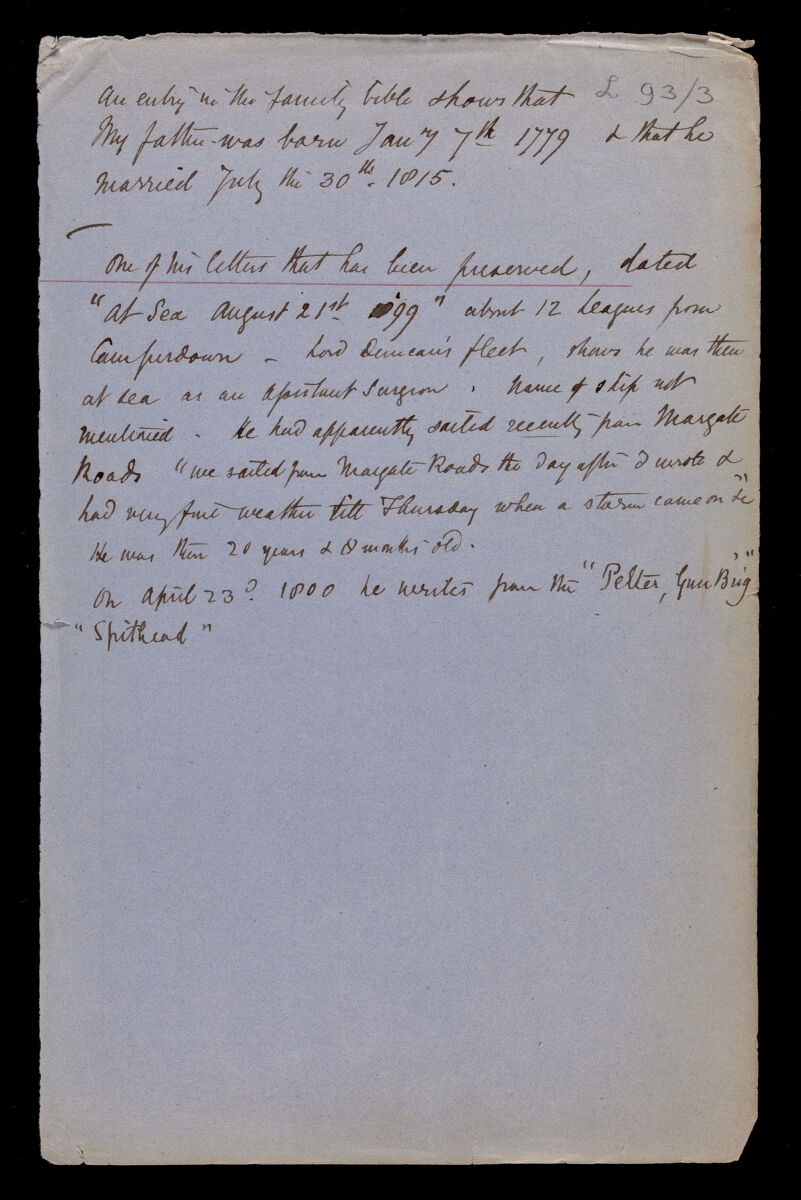 L 93/3
An entry in the family bible shows that
My father was born Jany 7th 1779 & that he
married July the 30th 1815.
One of his letters that has been preserved, dated
"At Sea August 21st '99" about 12 leagues from
Camperdown - Lord Duncan's fleet, shows he was then
at sea as an Assistant Surgeon. Name of ship not
mentioned. He had apparently sailed recently from Margate
Roads "we sailed from Margate Roads the day after I wrote &
had very fine weather till Thursday when a storm came on &c"
He was then 20 years & 8 months old.
On April 23d. 1800 he writes from the "Pelter, Gun Brig,"
"Spithead"